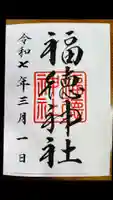 福徳神社
令和七年三月一日